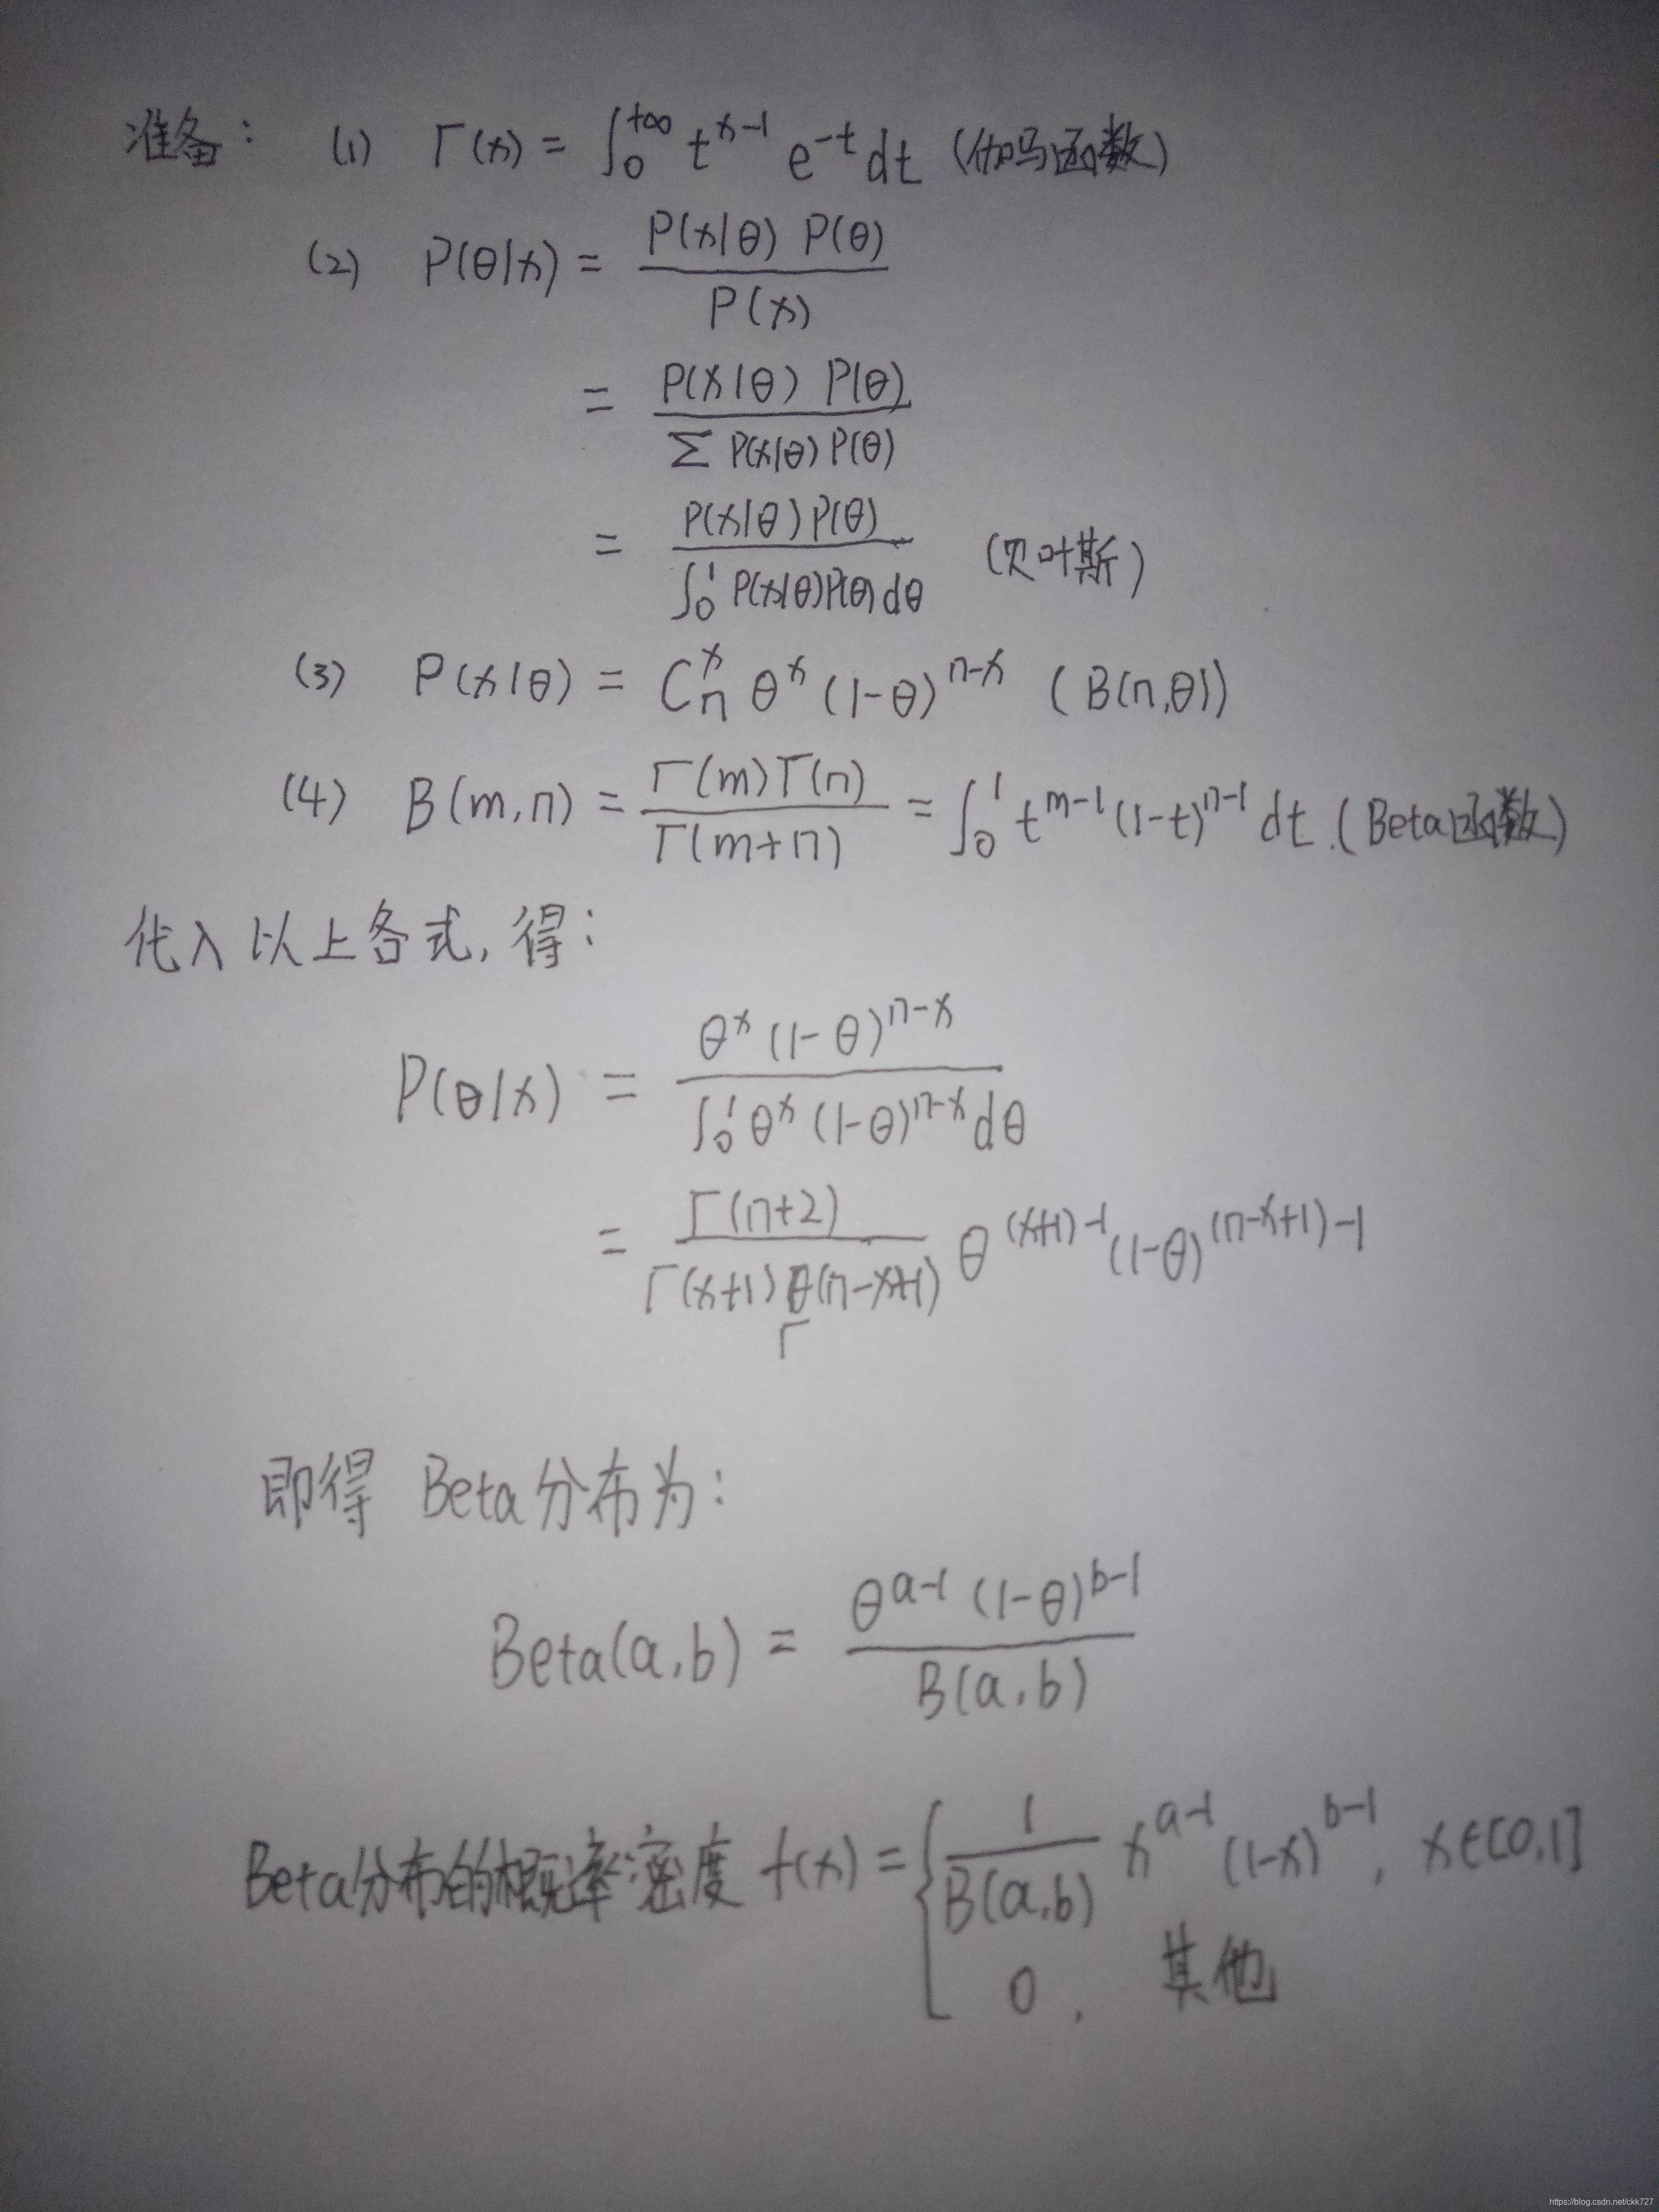 准备： (1) Γ(x) = ∫₀^{+∞} t^{x-1} e^{-t} dt (伽马函数)
(2) P(θ|x) = \frac{P(x|θ) P(θ)}{P(x)}
= \frac{P(x|θ) P(θ)}{Σ P(x|θ) P(θ)}
= \frac{P(x|θ) P(θ)}{∫₀^1 P(x|θ)P(θ) dθ} (贝叶斯)
(3) P(x|θ) = C_n^x θ^x (1-θ)^{n-x} (B(n,θ))
(4) B(m,n) = \frac{Γ(m)Γ(n)}{Γ(m+n)} = ∫₀^1 t^{m-1} (1-t)^{n-1} dt. (Beta函数)
代入以上各式, 得：
P(θ|x) = \frac{θ^x (1-θ)^{n-x}}{∫₀^1 θ^x (1-θ)^{n-x} dθ}
= \frac{Γ(n+2)}{Γ(x+1) Γ(n-x+1)} θ^{(x+1)-1} (1-θ)^{(n-x+1)-1}
即得 Beta分布为：
Beta(a,b) = \frac{θ^{a-1} (1-θ)^{b-1}}{B(a,b)}
Beta分布的概率密度 f(x) = { \frac{1}{B(a,b)} x^{a-1} (1-x)^{b-1}, x∈[0,1]
0, 其他
https://blog.csdn.net/ckk727